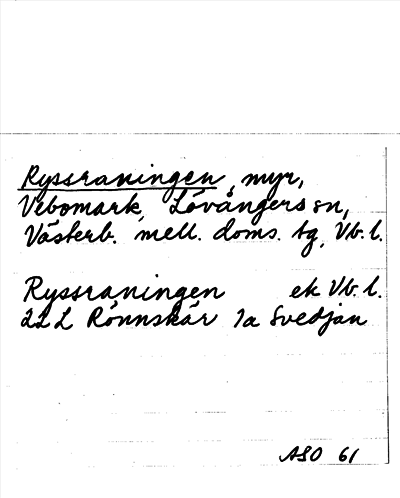 Ryssraningen, myr,
Vebomark, Lövångers sn,
Västerb. mell. doms. tg, Vb. l.
Ryssraningen ek Vb. l.
22 L Rönnskär 7a Svedjan
ASO 61